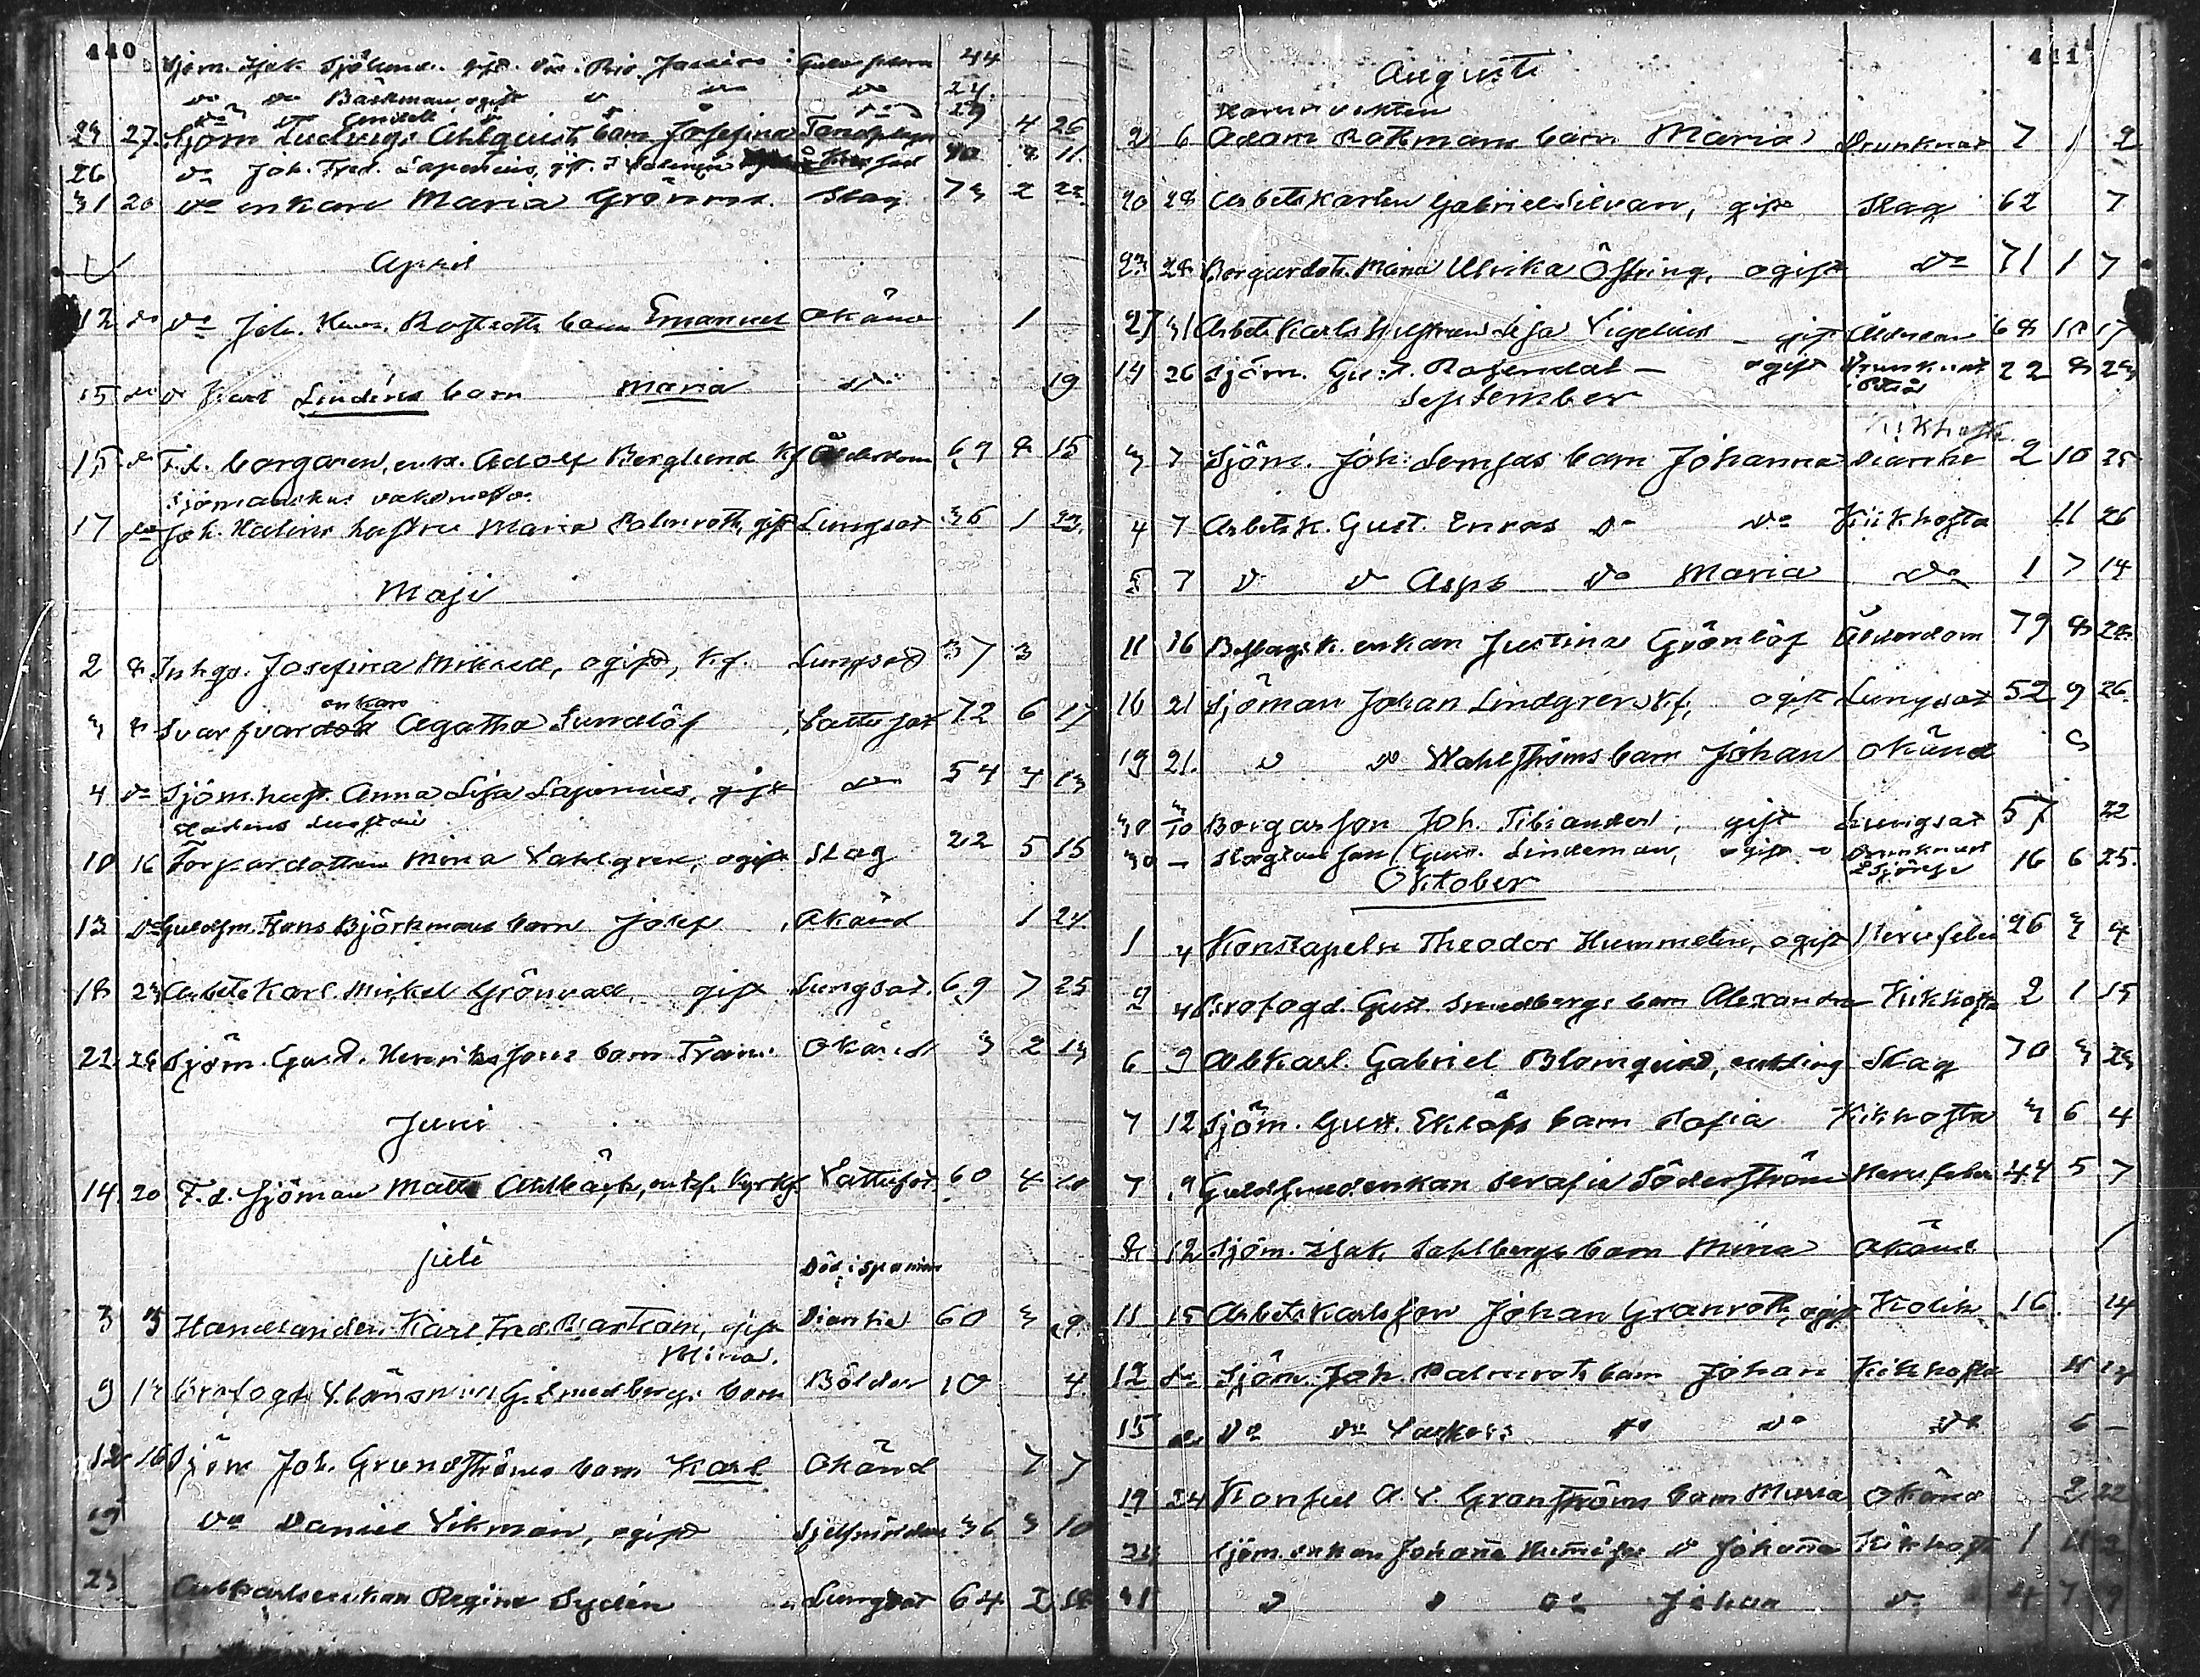 440
Sjöm. Isak Sjölund. gift. Rio Janeiro Gula febern 44
do do Bäckman, ogift do do do 24
do do do do 29
24 27 Sjöm Ludvigs Ahlquist barn Josefina Tandplågor 4 26
26 do Joh. Fred. Laponius, gift. 40 8 11
31 20 do enkan Maria Grönroos. Slag 73 2 22
April
12 do do Joh. barn Emanuel Okänd 1
15 do do Karl Lindéns barn Maria do 19
15 do F.d. borgaren, enkl. Adolf Berglund Kf Ålderdom 69 8 15
Sjömanshus vaktmäst.
17 do Joh. Hedins hustru Maria Palmroth, gift Lungsot 36 1 23
Maji
2 8 Inhgs. Josefina Mikaell, ogift, Kf. Lungsot 37 3
enkan
3 8 Svarfvar Agatha Sundlöf Vattusot 72 6 17
4 do Sjöm. hust. Anna Lisa Laponius, gift do 54 3 13
10 16 dottern Mina Vahlgren, ogift Slag 22 5 15
13 do Guldsm. Frans Björkmans barn Josef Okänd 1 24
18 23 Arbetskarl. Mickel Grönvall, gift Lungsot. 69 7 25
22 28 Sjöm. Gust. Henrikssons barn Frans Okänd 3 2 13
Juni
14 20 F.d. Sjöman Matts Ahlbäck, enkl. Vattusot 60 4 10
Juli
Död i Spanien
3 3 Handlanden Karl Fred. Bartram, gift Diarrhé 60 3 9
Mina.
9 12 Brofogd. G. Smedbergs barn Bölder 10 4
12 16 Sjöm Joh. Grundströms barn Karl Okänd 7 7
19 do Daniel Vikman, ogift Sjelfmördare 36 3 10
23 Arbkarlsenkan Regina Sydén Lungsot 64 2 18
441
Augusti
Hamnvakten
2 6 Adam Rothmans barn Maria Drunknat 7 1 2
20 28 Arbetskarlen Gabriel Silvan, gift Slag 62 7
23 28 Borgardotr. Maria Ulrika Östring, ogift do 71 1 7
27 31 Arbetskarls hustrun Lisa Vigelius gift Ålderdom 68 10 17
14 26 Sjöm. Gust. Rosendal ogift Drunknat 22 8 23
September
Kikhosta
3 7 Sjöm. Joh. barn Johanna Diarrhé 2 10 25
4 7 Arbetsk. Gust. Enros do do Kikhosta 11 26
5 7 do do Asps do Maria do 1 7 14
11 16 Beslagsk. enkan Justina Grönlöf Ålderdom 79 8 28
16 21 Sjöman Johan Lindgren Kf, ogift Lungsot 52 9 26
19 21 do do Wahlströms barn Johan Okänd 9
30 3/10 Borgarson Joh. Tibiander, gift Lungsot 57 22
30 Gust. Lindeman, ogift Drunknat 16 6 25
Oktober
1 4 Konstapeln Theodor Hummelin, ogift Nervfeber 26 3 4
2 4 Brofogd. Gust. Smedbergs barn Alexandra Kikhosta 2 1 15
6 9 Arbkarl. Gabriel Blomqvist, enkling Slag 70 3 23
7 12 Sjöm. Gust. Eklöfs barn Sofia Kikhosta 3 6 4
7 9 Guldsmedenkan Serafia Söderström Nervfeber 44 5 7
8 12 Sjöm. Isak Sahlbergs barn Mina Okänd 1
11 15 Arbetskarlsson Johan Granroth, ogift Kolik 16 14
12 do Sjöm. Joh. Palmroth barn Johan Kikhosta 11 14
15 do do do do do do 6 —
19 24 Konsul A. V. Granströms barn Maria Okänd 2 22
Sjöm. enkan Johanna do Johanna Kikhosta 1 11 2
31 do do do Johan do 4 7 9